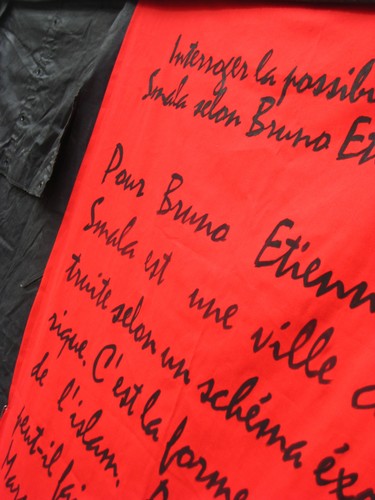 Interroger la possibi
Smala selon Bruno Et
Pour Bruno Etienn
Smala est une ville c
truite selon un schéma éxo
rique. C'est la forme
de l'islam.
peut-il fai